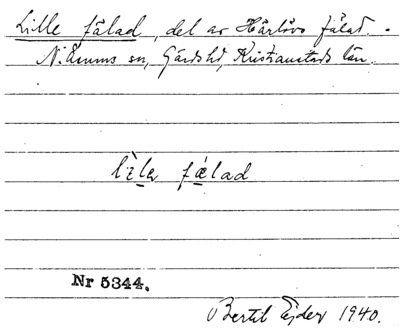 Lille fälad, del av Härlövs fälad.
N. Åsums sn, Gärds hd, Kristianstads län.
lìla fǽlad
Nr 5344.
Bertil Ejder 1940.